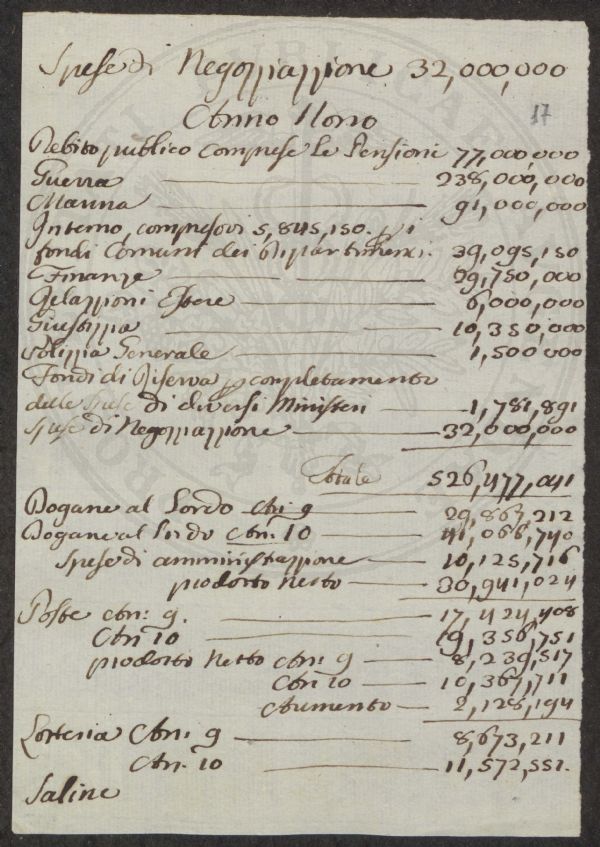 Spese di Negozziazzione 32,000,000
17
Anno Nono
Debito publico comprese le Pensioni 77,000,000
Guerra 238,000,000
Marina 91,000,000
Interno, compresovi 5,845,150. p i
fondi Comuni dei Dipartimenti. 39,095,150
Finanze 29,750,000
Relazzioni Estere 6,000,000
Giustizzia 10,350,000
Polizzia Generale 1,500,000
Fondi di Riserva p completamento
delle spese di diversi Ministeri 1,781,891
Spese di Negozziazzione 32,000,000
Totale 526,477,041
Dogane al Lordo An: 9 29,867,212
Dogane al Lordo An: 10 41,066,740
Spese di amministrazzione 10,125,716
prodotto netto 30,941,024
Poste An: 9. 17,424,408
An: 10 19,356,751
prodotto netto An: 9 8,239,517
An: 10 10,367,711
Aumento 2,128,194
Lotteria An: 9 8,673,211
An: 10 11,572,551.
Saline